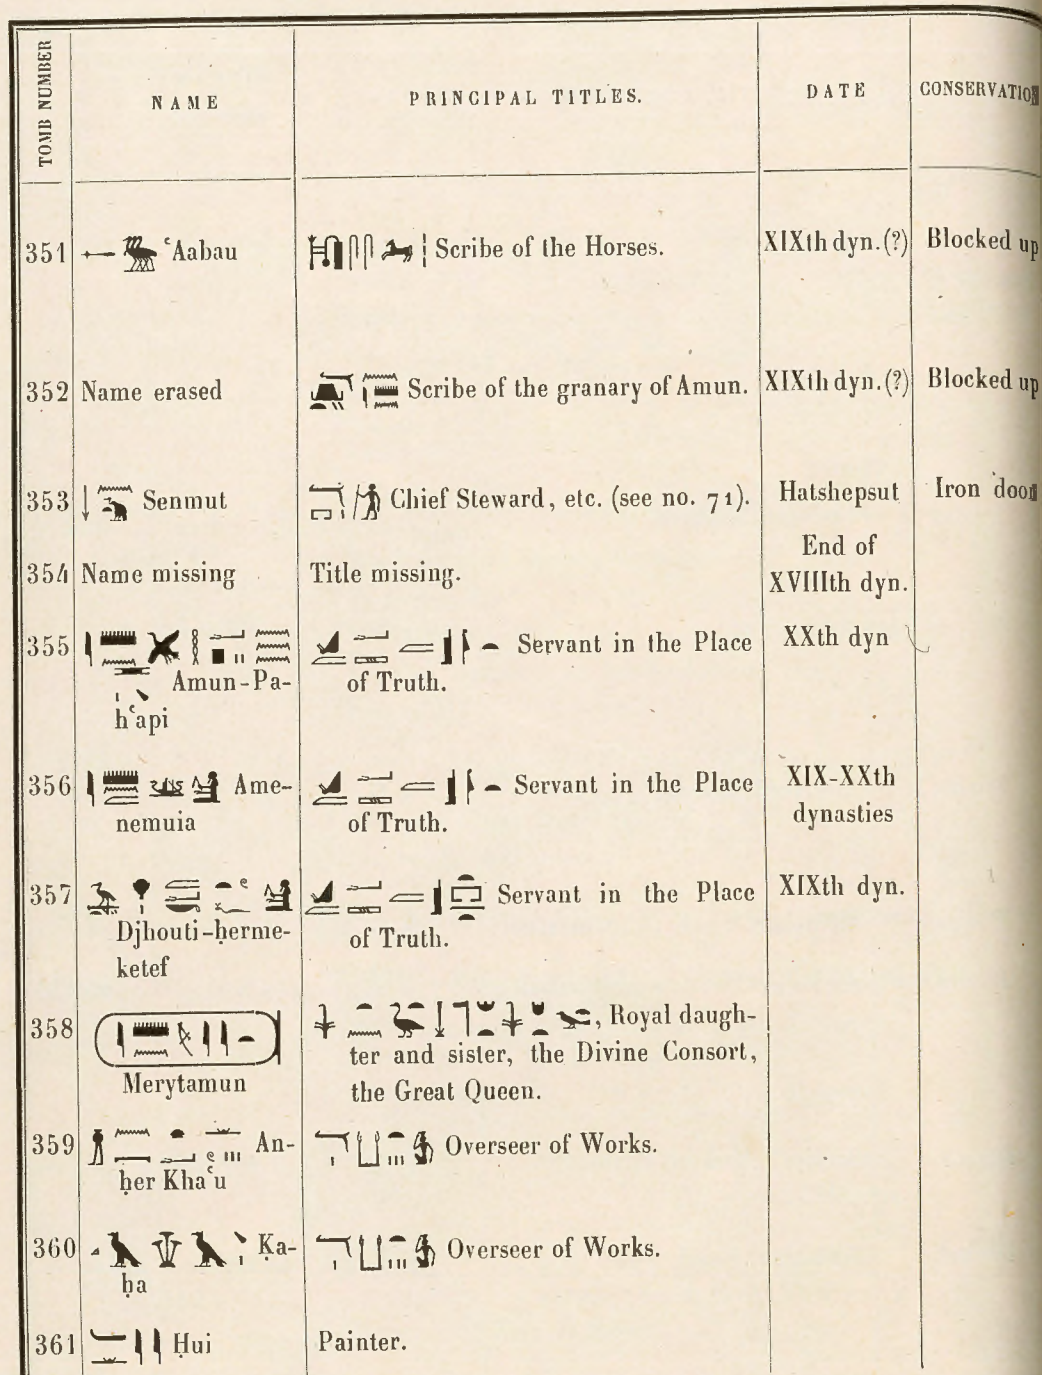 TOMB NUMBER NAME PRINCIPAL TITLES. DATE CONSERVATION
351 ʿAabau Scribe of the Horses. XIXth dyn.(?) Blocked up
352 Name erased Scribe of the granary of Amun. XIXth dyn.(?) Blocked up
353 Senmut Chief Steward, etc. (see no. 71). Hatshepsut Iron door
354 Name missing Title missing. End of
XVIIIth dyn.
355 Amun-Pa-
hʿapi
Servant in the Place
of Truth.
XXth dyn
356 Ame-
nemuia
Servant in the Place
of Truth.
XIX-XXth
dynasties
357 Djhouti-ḥerme-
ketef
Servant in the Place
of Truth.
XIXth dyn.
358 Merytamun
, Royal daugh-
ter and sister, the Divine Consort,
the Great Queen.
359 An-
ḥer Khaʿu
Overseer of Works.
360 Ḳa-
ḥa
Overseer of Works.
361 Ḥui Painter.